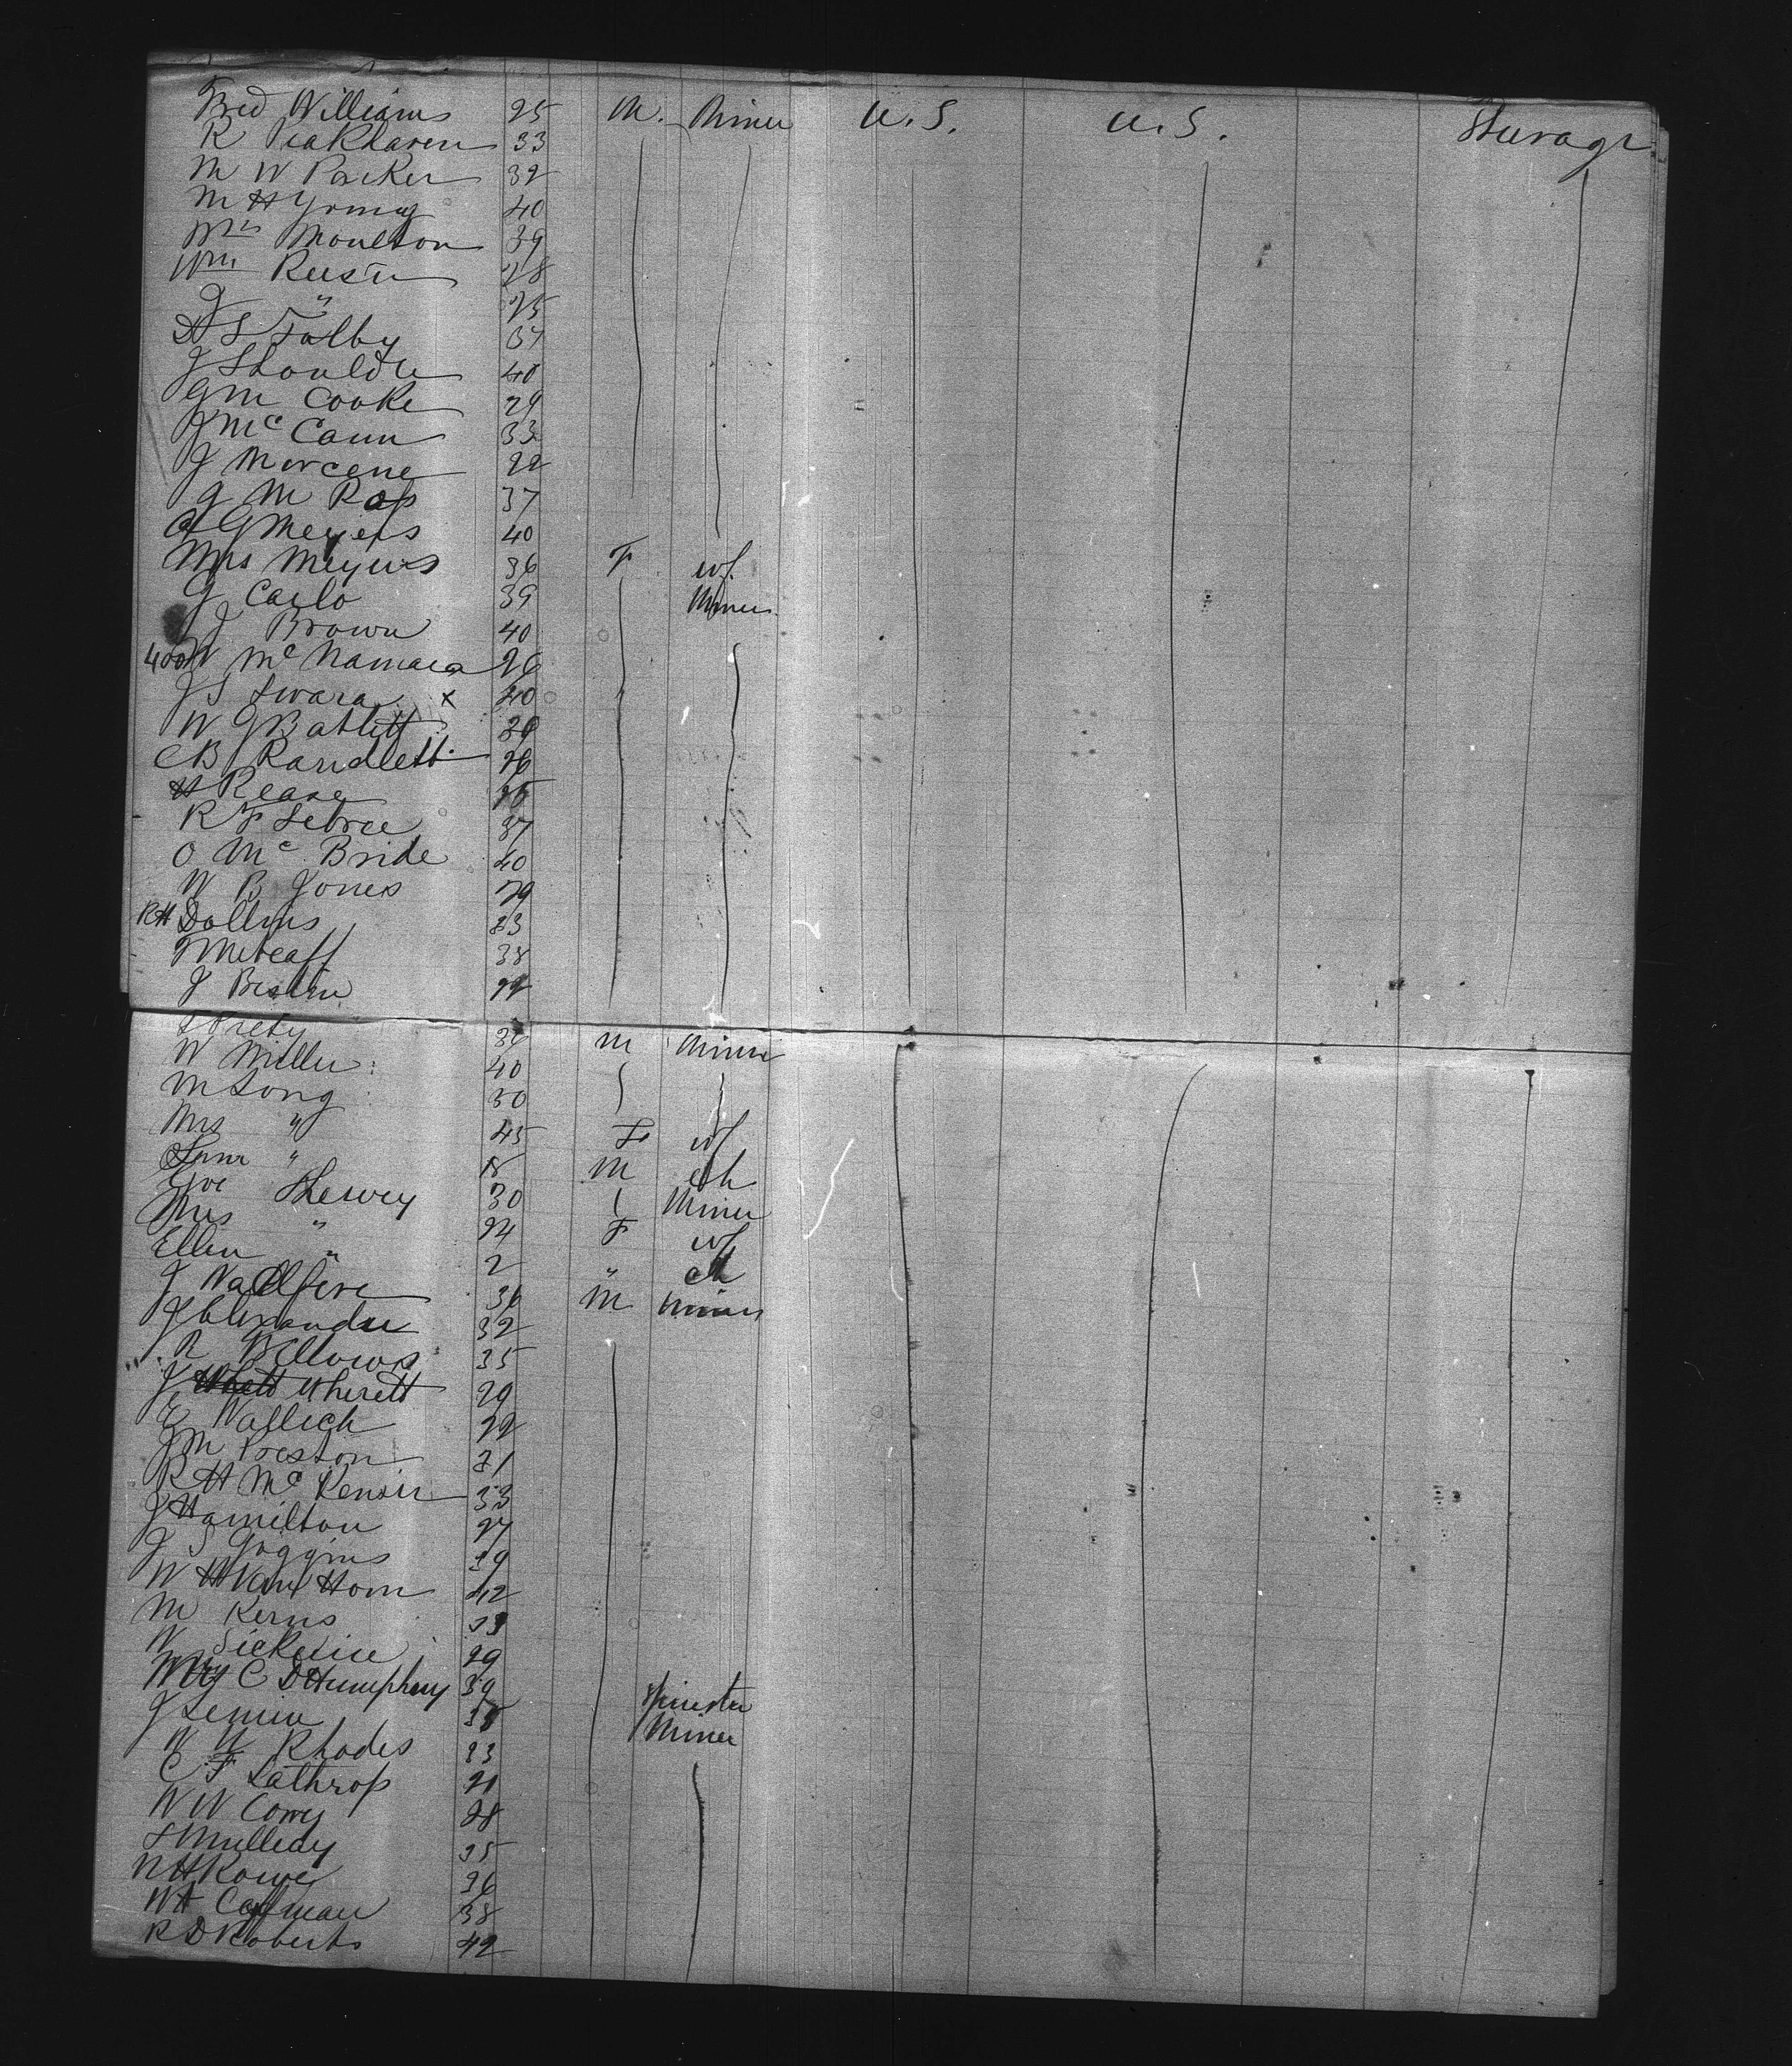 Fred Williams 25 M. Miner U.S. U.S. Steerage
R Peakhaven 33
M W Parker 32
M H Young 40
Wm Moulton 39
Wm Reesin 28
J " 25
H S Tolby 37
J Shoulder 40
G M Cooke 29
J McCann 33
J Marcene 22
J M Ross 37
A G Meyers 40
Mrs Meyers 36 F wf.
J Carlo 39 Miner
J Brown 40
400 W McNamara 26
J S Swara x 40
W G Batlett
C B Randlett 26
H Reare
R F Lebree 37
O Mc Bride 40
W B Jones 29
RH Dollins 23
T Metcalf 38
J 22
M Miner
W Miller 40
M Long 50
Mrs " 45 F wf
" 15 M ch
Shewey 30 Miner
Mrs " 24 F wf
Ellen " 2 " ch
J 36 M Miner
J Alexander 32
R Bellows 35
J Wherett 29
E Wallich 22
J M Preston 21
R H McKensie 33
J Hamilton 27
J S Goggins 39
W H Van Horn 42
M Kerns 33
W Sickelice 29
C D Humphrey 39
J Lemin 38 Miner
W N Rhodes 23
C F Lathrop 21
W W Corry 28
S Mulleay 35
N H Rowe 36
W A Coffman 38
R D Roberts 42